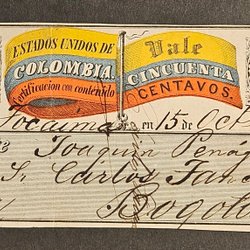 ESTADOS UNIDOS DE
COLOMBIA
Certificacion con contenido
Vale
CINCUENTA
CENTAVOS.
Tocaima en 15 de Oct
Joaquin
Sr Carlos
Bogotá